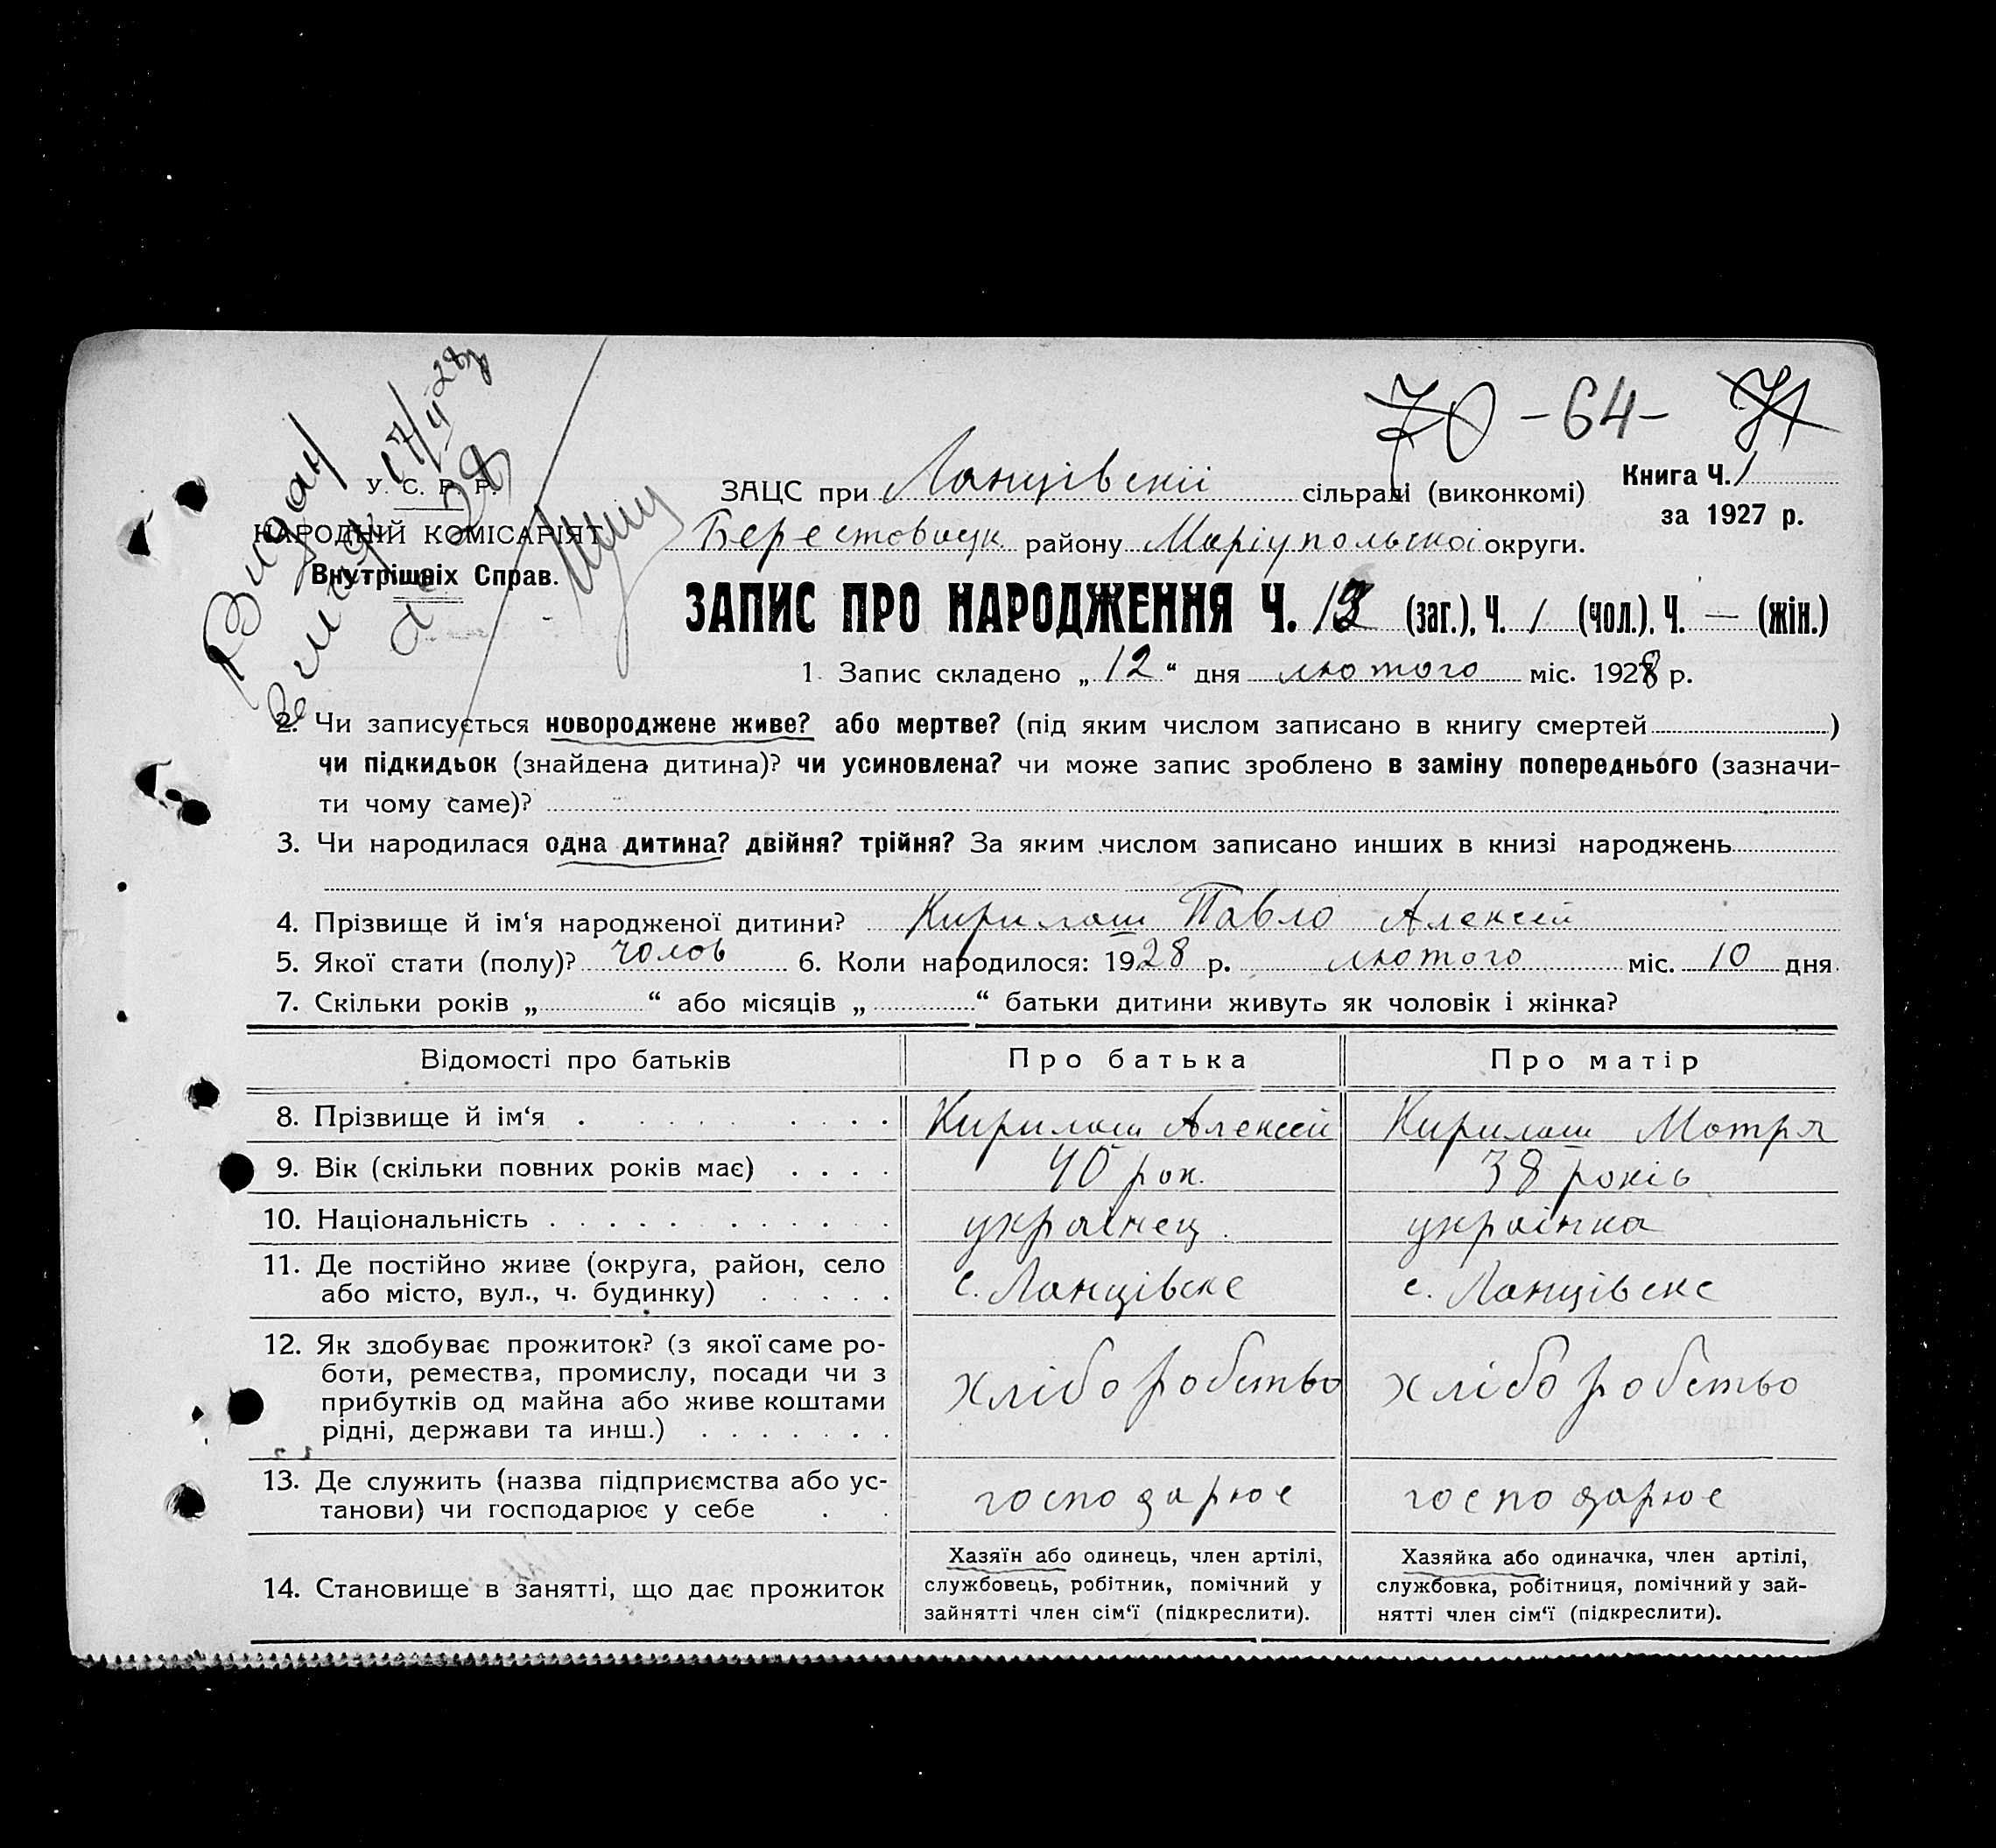 70 - 64 - 71
Видан
17/II 28 р
У. С. Р. Р.
НАРОДНІЙ КОМІСАРІЯТ
Внутрішніх Справ.
ЗАЦС при Ланцівскії сільраді (виконкомі)
Книга Ч. 1
за 1927 р.
Берестовацк району Маріупольскої округи.
ЗАПИС ПРО НАРОДЖЕННЯ Ч. 12 (заг.), Ч. 1 (чол.), Ч. — (жін.)
1. Запис складено „ 12 “ дня лютого міс. 1928 р.
2. Чи записується новороджене живе? або мертве? (під яким числом записано в книгу смертей )
чи підкидьок (знайдена дитина)? чи усиновлена? чи може запис зроблено в заміну попереднього (зазначи-
ти чому саме)?
3. Чи народилася одна дитина? двійня? трійня? За яким числом записано инших в книзі народжень
4. Прізвище й ім‘я народженої дитини? Кирилаш Павло Алексей
5. Якої стати (полу)? чолов 6. Коли народилося: 1928 р. лютого міс. 10 дня
7. Скільки років „ “ або місяців „ “ батьки дитини живуть як чоловік і жінка?
Відомості про батьків Про батька Про матір
8. Прізвище й ім‘я Кирилаш Алексей Кирилаш Мотря
9. Вік (скільки повних років має) 40 рок. 38 років
10. Національність українец. українка
11. Де постійно живе (округа, район, село
або місто, вул., ч. будинку) с. Ланцівске с. Ланцівске
12. Як здобуває прожиток? (з якої саме ро-
боти, ремества, промислу, посади чи з
прибутків од майна або живе коштами
рідні, держави та инш.) хліборобство хліборобство
13. Де служить (назва підприємства або ус-
танови) чи господарює у себе господарює господарює
14. Становище в занятті, що дає прожиток
Хазяїн або одинець, член артілі,
службовець, робітник, помічний у
зайнятті член сім‘ї (підкреслити).
Хазяйка або одиначка, член артілі,
службовка, робітниця, помічний у зай-
нятті член сім‘ї (підкреслити).